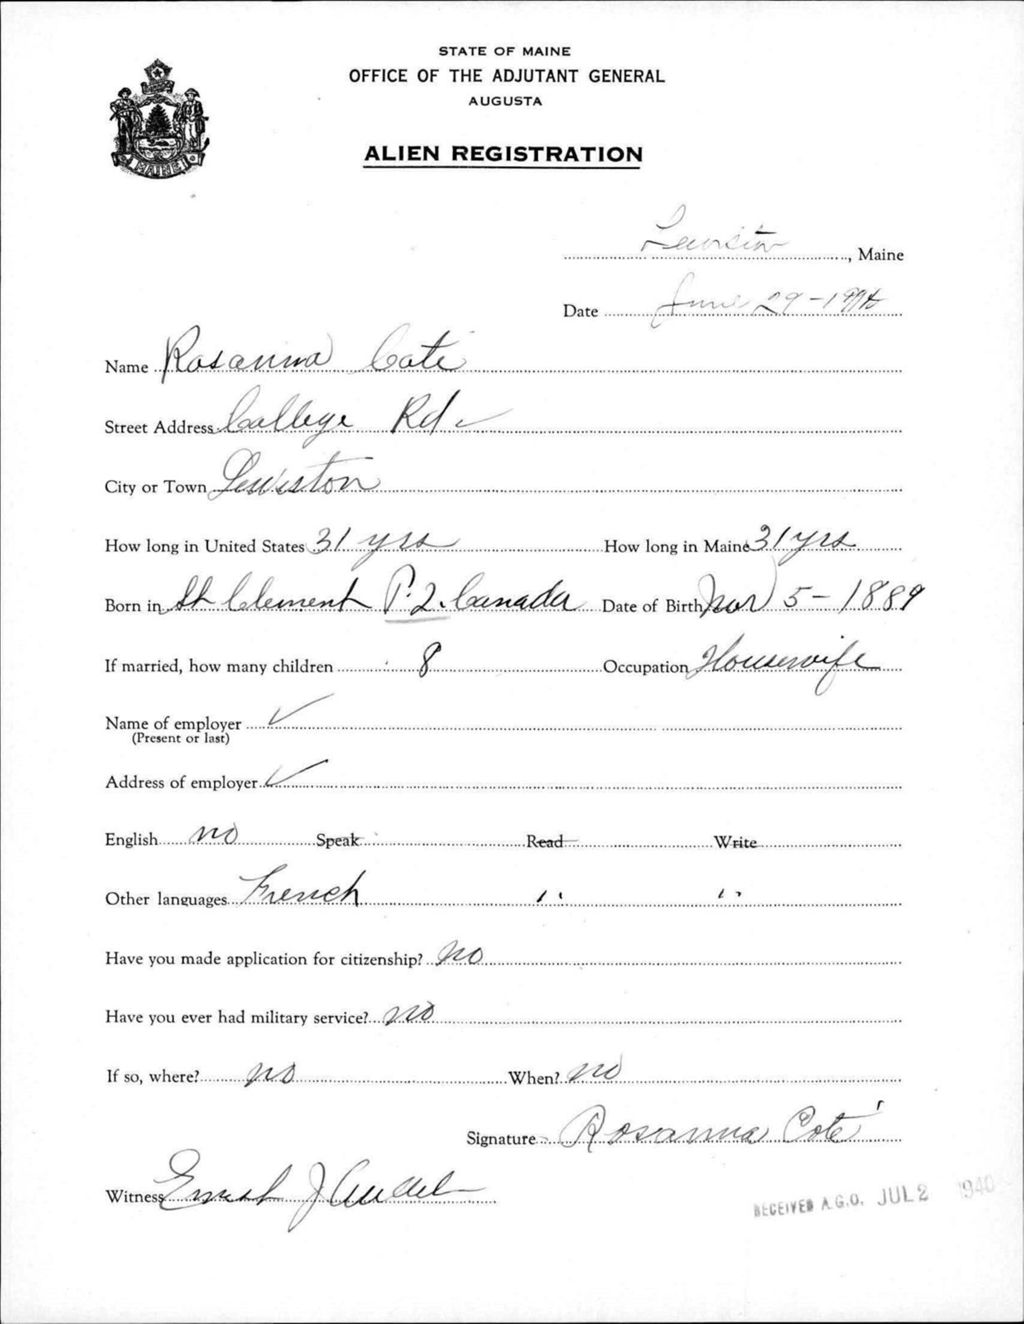 STATE OF MAINE
OFFICE OF THE ADJUTANT GENERAL
AUGUSTA
ALIEN REGISTRATION
MAINE
Lewiston, Maine
Date June 29-1940
Name Rosanna Cote
Street Address College Rd
City or Town Lewiston
How long in United States 31 yrs How long in Maine 31 yrs
Born in St Clement P.Q. Canada Date of Birth Nov 5-1889
If married, how many children 8 Occupation Housewife
Name of employer ✓
(Present or last)
Address of employer ✓
English no Speak Read Write
Other languages French " "
Have you made application for citizenship? No
Have you ever had military service? no
If so, where? no When? no
Signature Rosanna Coté
Witness Ernest J
RECEIVED A.G.O. JUL 2 1940